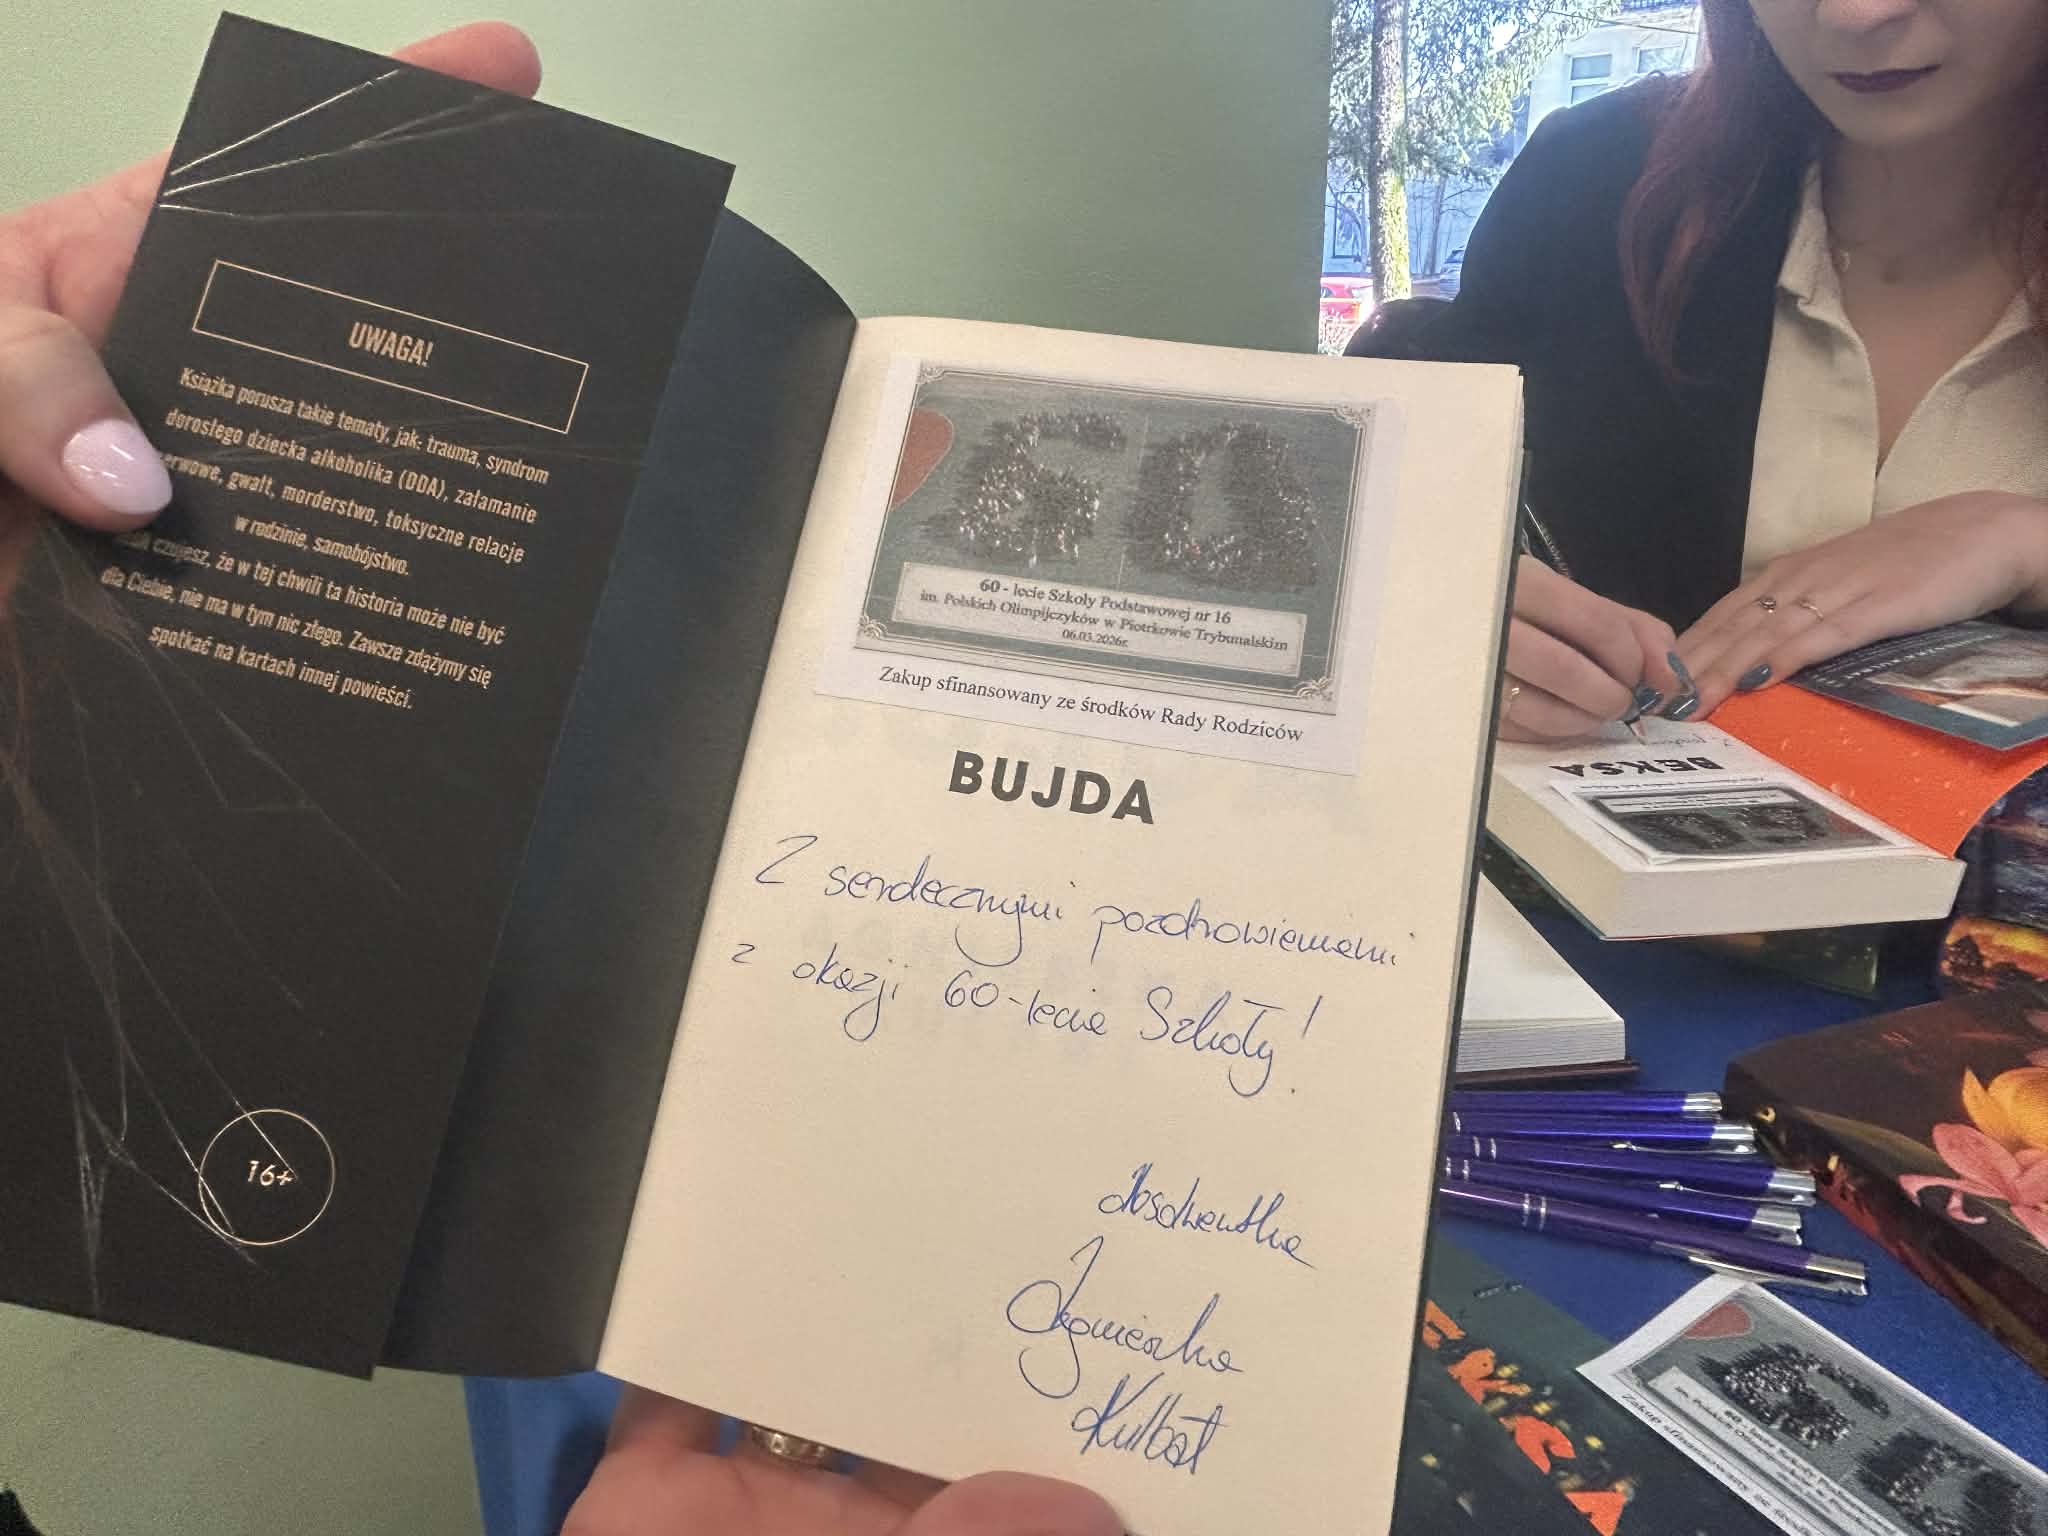 UWAGA!
Książka porusza takie tematy, jak: trauma, syndrom
dorosłego dziecka alkoholika (DDA), załamanie
erwowe, gwałt, morderstwo, toksyczne relacje
w rodzinie, samobójstwo.
czujesz, że w tej chwili ta historia może nie być
dla Ciebie, nie ma w tym nic złego. Zawsze zdążymy się
spotkać na kartach innej powieści.
16+
60 - lecie Szkoły Podstawowej nr 16
im. Polskich Olimpijczyków w Piotrkowie Trybunalskim
06.03.2026r.
Zakup sfinansowany ze środków Rady Rodziców
BUJDA
Z serdecznymi pozdrowieniami
z okazji 60-lecia Szkoły!
Absolwentka
Agnieszka
Kulbat
BEKSA
60 - lecie Szkoły
im. Polskich Olimpijczyków
Zakup sfinansowany ze